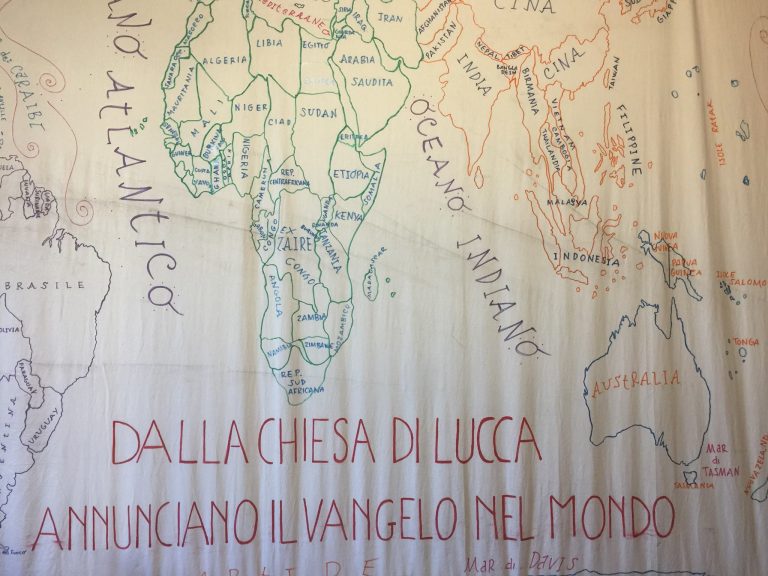 CINA
MEDITERRANEO
SIRIA
IRAQ
IRAN
AFGHANISTAN
PAKISTAN
MAROCCO
ALGERIA
LIBIA
EGITTO
ARABIA
SAUDITA
NEPAL
TIBET
CINA
INDIA
BIRMANIA
TAIWAN
MAURITANIA
MALI
NIGER
CIAD
SUDAN
ERITREA
VIETNAM
CAMBOGIA
FILIPPINE
GUINEA
COSTA
GHANA
NIGERIA
REP.
CENTRAFRICANA
ETIOPIA
SOMALIA
CAMERUN
CONGO
UGANDA
KENYA
EX
ZAIRE
CONGO
TANZANIA
MALAYSIA
INDONESIA
ANGOLA
ZAMBIA
MOZAMBICO
MADAGASCAR
NAMIBIA
ZIMBABWE
REP.
SUD
AFRICANA
ANO ATLANTICO
OCEANO INDIANO
CARAIBI
BRASILE
PARAGUAY
URUGUAY
NUOVA
PAPUA
GUINEA
ISOLE
SALOMO
TONGA
AUSTRALIA
MAR
di
TASMAN
DALLA CHIESA DI LUCCA
ANNUNCIANO IL VANGELO NEL MONDO
MAR di DAVIS